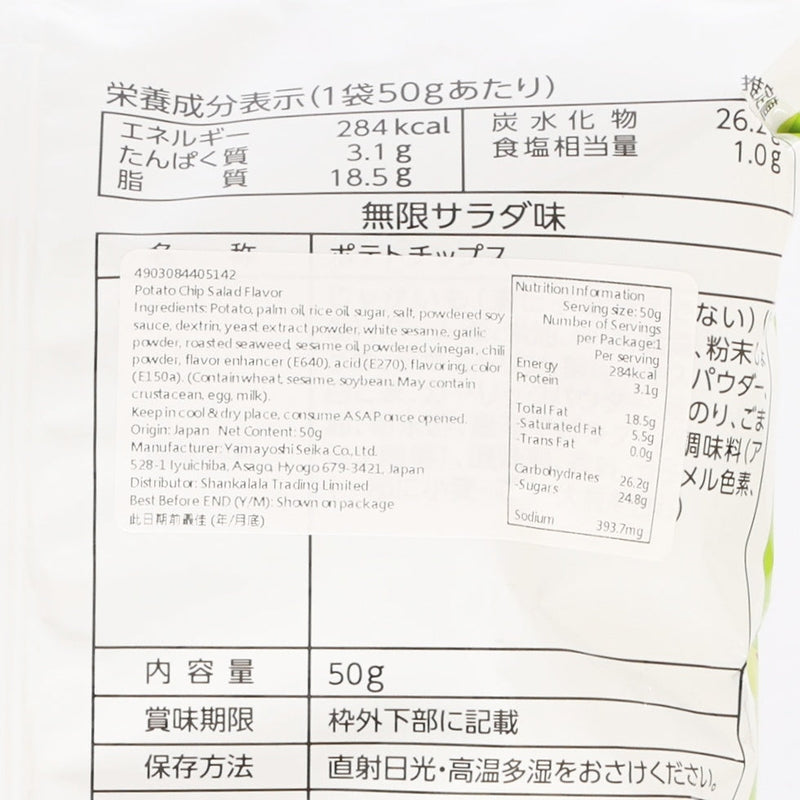 栄養成分表示(1袋50gあたり)
エネルギー 284kcal
たんぱく質 3.1g
脂質 18.5g
炭水化物 26.2g
食塩相当量 1.0g
無限サラダ味
名称 ポテトチップス
4903084405142
Potato Chip Salad Flavor
Ingredients: Potato, palm oil, rice oil, sugar, salt, powdered soy
sauce, dextrin, yeast extract powder, white sesame, garlic
powder, roasted seaweed, sesame oil, powdered vinegar, chili
powder, flavor enhancer (E640), acid (E270), flavoring, color
(E150a). (Contain wheat, sesame, soybean. May contain
crustacean, egg, milk).
Keep in cool & dry place, consume ASAP once opened.
Origin: Japan Net Content: 50g
Manufacturer: Yamayoshi Seika Co., Ltd.
528-1 Iyuichiba, Asago, Hyogo 679-3421, Japan
Distributor: Shankalala Trading Limited
Best Before END (Y/M): Shown on package
此日期前最佳 (年/月底)
Nutrition Information
Serving size: 50g
Number of Servings
per Package:1
Per serving
Energy 284kcal
Protein 3.1g
Total Fat 18.5g
-Saturated Fat 5.5g
-Trans Fat 0.0g
Carbohydrates 26.2g
-Sugars 24.8g
Sodium 393.7mg
ない)
、粉末
パウダー、
のり、ごま
調味料(ア
メル色素、
)
内容量 50g
賞味期限 枠外下部に記載
保存方法 直射日光・高温多湿をおさけください。